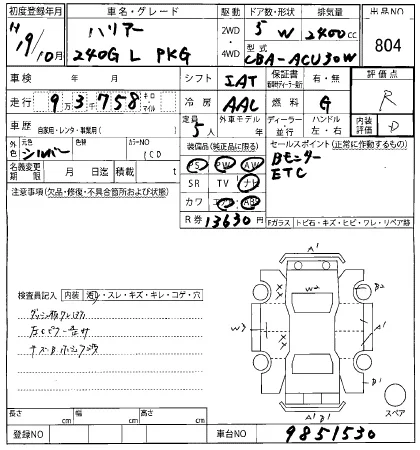 初度登録年月 車名・グレード 駆動 ドア数・形状 排気量 出品NO
H 19/10月 ハリアー 2WD 5 W 2400cc 804
240G L PKG 4WD 型式 CBA-ACU30W
車検 年 月 シフト IAT 保証書 有・無 評価点
走行 93,758 キロ・マイル 冷房 AAC 燃料 G R
車歴 自家用・レンタ・事業用( ) 定員 5人 外車モデル 年 ディーラー 並行 ハンドル 左・右 内装評価 D
外色 シルバー 色替 カラーNO (CD 装備品(純正品に限る) セールスポイント(正常に作動するもの)
名義変更期限 月 日迄 積載 t PS PW AW Bモニター
注意事項(欠品・修復・不具合箇所および状態) SR TV ナビ ETC
カワ エアB ABS
R券 13630 円 Fガラス トビ石・キズ・ヒビ・ワレ・リペア跡
検査員記入 内装 スレ・キズ・キレ・コゲ・穴
A1
W2
B2
W3
A1
B1
A1 B1
スペア
長さ cm 幅 cm 高さ cm
登録NO 車台NO 9851530